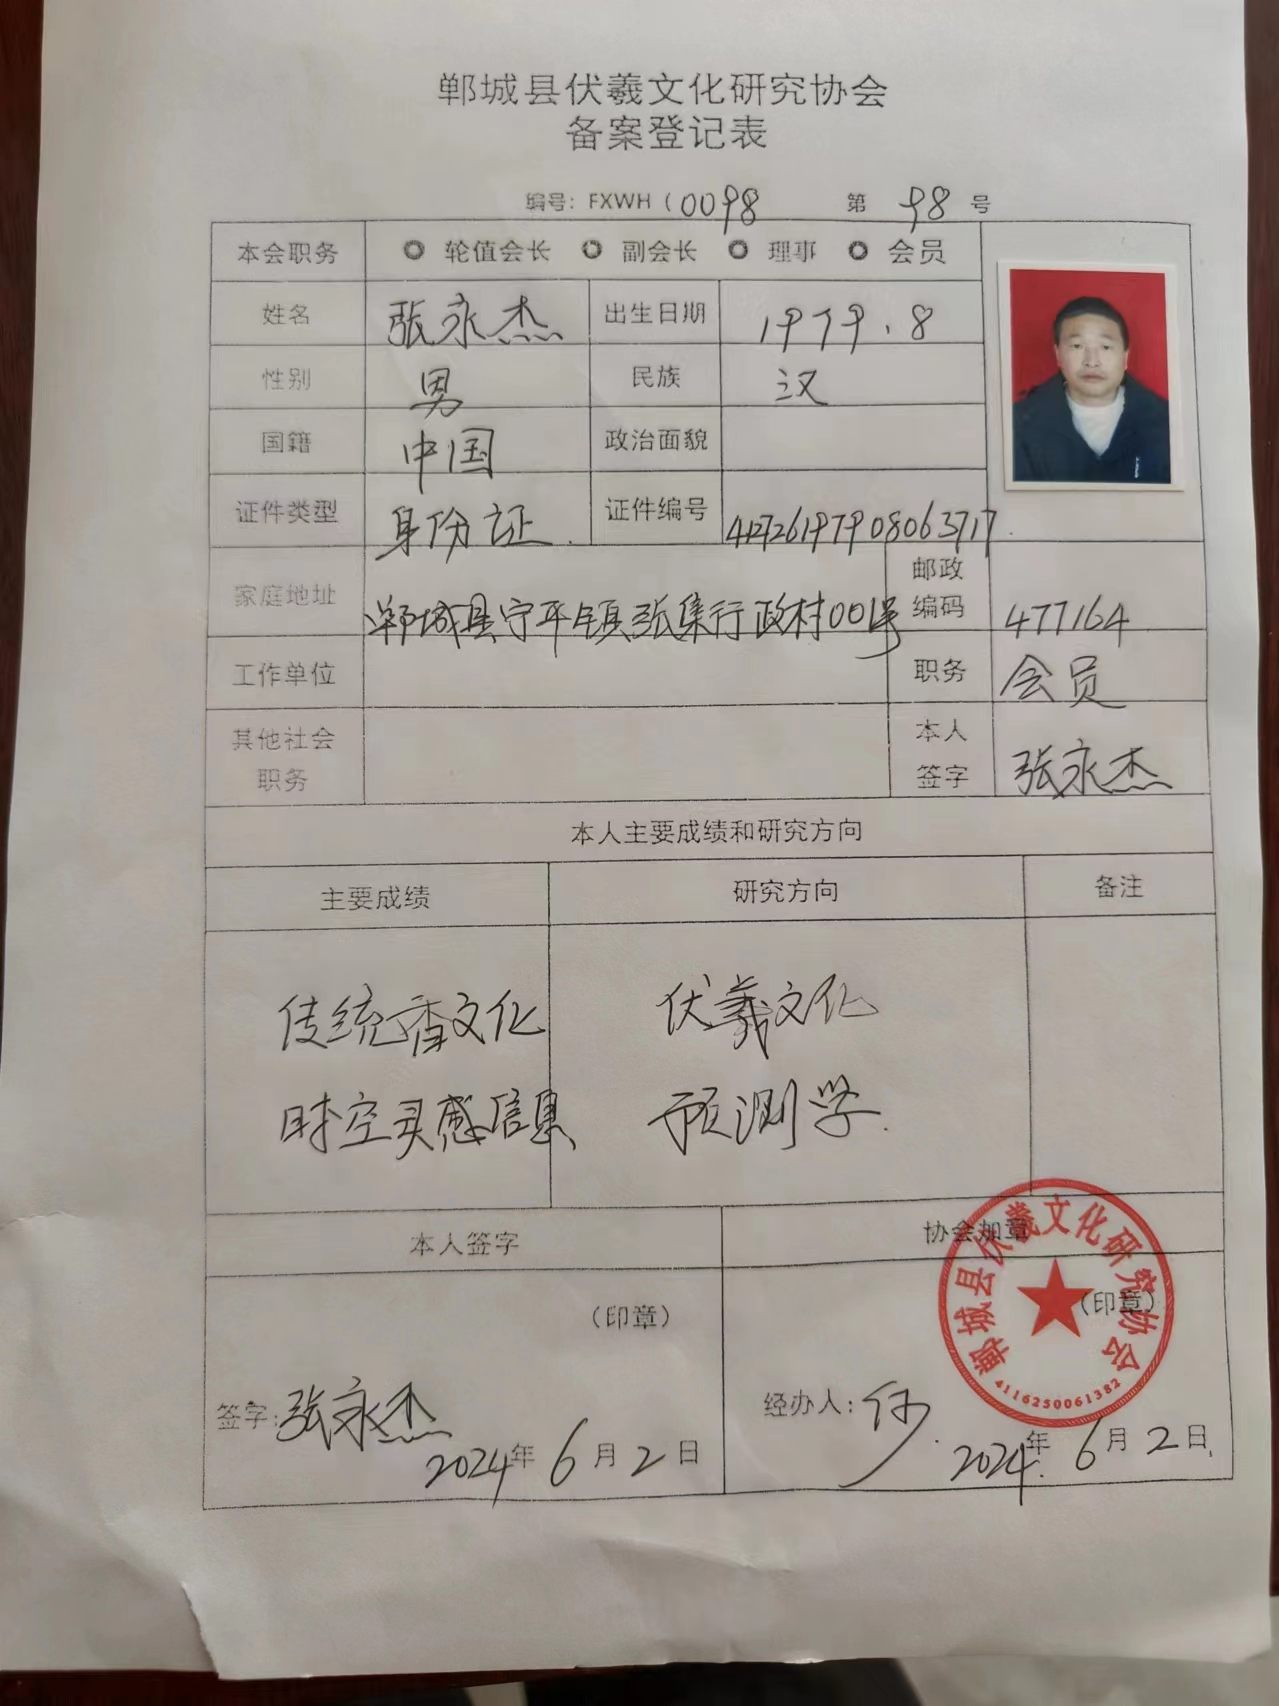 郸城县伏羲文化研究协会
备案登记表
编号：FXWH（0098 第 98 号
本会职务 轮值会长 副会长 理事 会员
姓名 张永杰 出生日期 1979.8
性别 男 民族 汉
国籍 中国 政治面貌
证件类型 身份证. 证件编号 412726197908063717.
家庭地址 郸城县宁平镇张集行政村001号 邮政编码 477164
工作单位 职务 会员
其他社会职务 本人签字 张永杰
本人主要成绩和研究方向
主要成绩 研究方向 备注
传统香文化 伏羲文化
时空灵感信息 预测学.
本人签字 协会加章
（印章） （印章）
签字：张永杰 经办人：
2024年 6月 2日 2024年. 6月 2日
郸城县伏羲文化研究协会
4116250061382